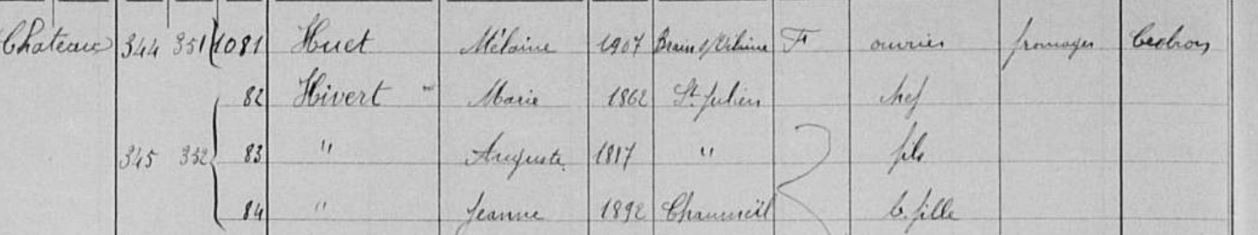 Chateau 344 351 1081 Huet Mélaine 1907 Brain s/Vilaine Fr ouvrier fromager
82 Hivert Marie 1862 St Julien chef
345 352 83 " Auguste 1887 " fils
84 " Jeanne 1892 Chaumeil b. fille